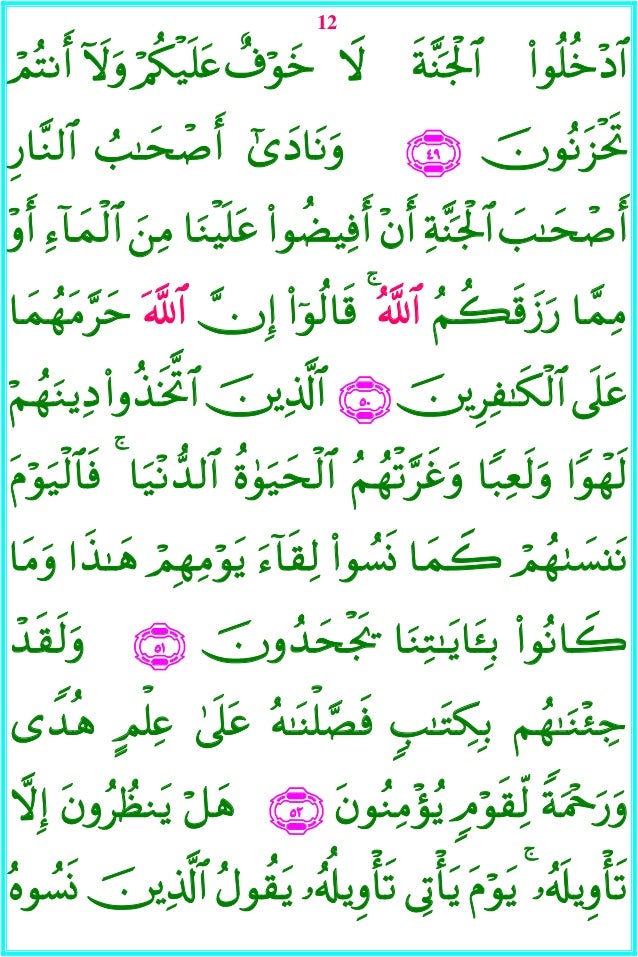 12
ٱدْخُلُوا۟ ٱلْجَنَّةَ لَا خَوْفٌ عَلَيْكُمْ وَلَآ أَنتُمْ
تَحْزَنُونَ ٤٩ وَنَادَىٰٓ أَصْحَـٰبُ ٱلنَّارِ
أَصْحَـٰبَ ٱلْجَنَّةِ أَنْ أَفِيضُوا۟ عَلَيْنَا مِنَ ٱلْمَآءِ أَوْ
مِمَّا رَزَقَكُمُ ٱللَّهُ ۚ قَالُوٓا۟ إِنَّ ٱللَّهَ حَرَّمَهُمَا
عَلَى ٱلْكَـٰفِرِينَ ٥٠ ٱلَّذِينَ ٱتَّخَذُوا۟ دِينَهُمْ
لَهْوًا وَلَعِبًا وَغَرَّتْهُمُ ٱلْحَيَوٰةُ ٱلدُّنْيَا ۚ فَٱلْيَوْمَ
نَنسَىٰهُمْ كَمَا نَسُوا۟ لِقَآءَ يَوْمِهِمْ هَـٰذَا وَمَا
كَانُوا۟ بِـَٔايَـٰتِنَا يَجْحَدُونَ ٥١ وَلَقَدْ
جِئْنَـٰهُم بِكِتَـٰبٍ فَصَّلْنَـٰهُ عَلَىٰ عِلْمٍ هُدًى
وَرَحْمَةً لِّقَوْمٍ يُؤْمِنُونَ ٥٢ هَلْ يَنظُرُونَ إِلَّا
تَأْوِيلَهُۥ ۚ يَوْمَ يَأْتِى تَأْوِيلُهُۥ يَقُولُ ٱلَّذِينَ نَسُوهُ